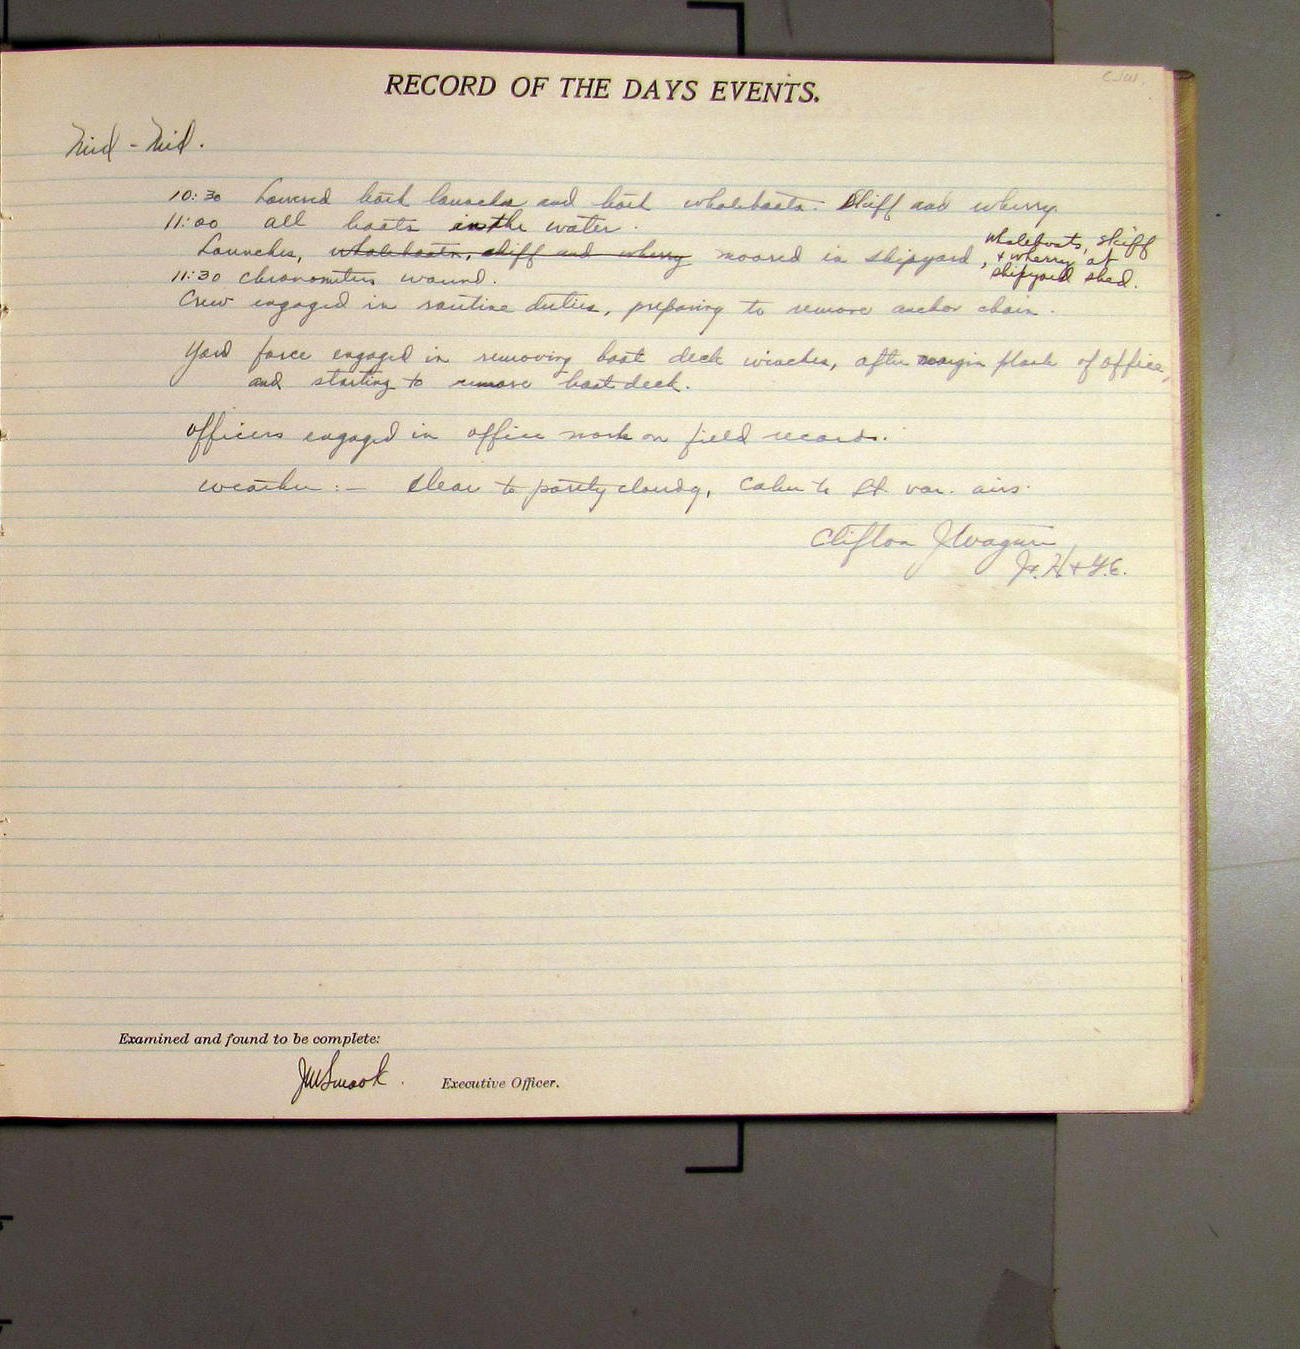 C.J.W.
RECORD OF THE DAYS EVENTS.
Mid - Mid.
10:30 Lowered both launches and both whaleboats. Skiff and wherry
11:00 all boats in the water.
Launches, whaleboats, skiff and wherry moored in shipyard, whaleboats, skiff
& wherry at
shipyard shed.
11:30 chronometers wound.
Crew engaged in routine duties, preparing to remove anchor chain.
Yard force engaged in removing boat deck winches, after margin plank of office,
and starting to remove boat deck.
Officers engaged in office work on field records.
Weather :- Clear to partly cloudy, calm to lt. var. airs.
Clifton J. Wagner
Jr. H. & G. E.
Examined and found to be complete:
JM Smook. Executive Officer.